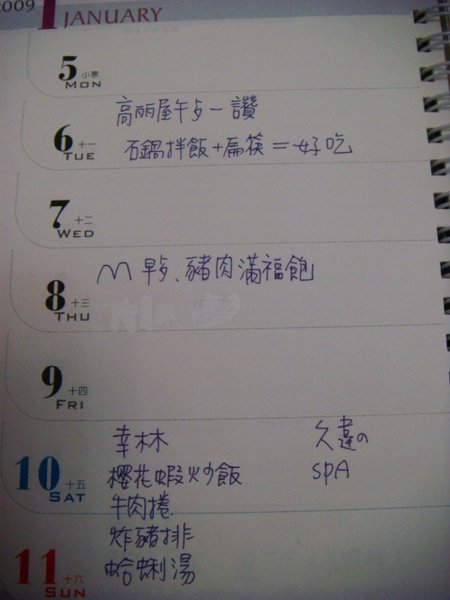 2009 1 JANUARY
5 小寒
MON
高丽屋午歺一讚
6 十一
TUE
石鍋拌飯+扁筷=好吃
7 十二
WED
M 早歺、豬肉滿福飽
8 十三
THU
9 十四
FRI
幸林 久違の
10 十五 櫻花蝦炒飯 SPA
SAT
牛肉捲
炸豬排
11 十六 蛤蜊湯
SUN